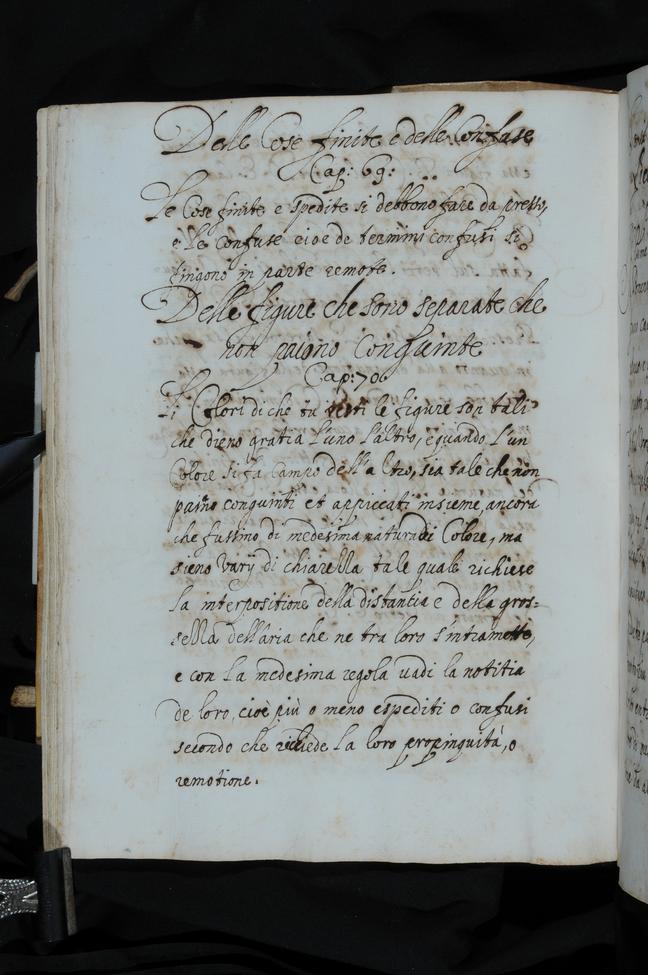 Delle Cose finite e delle Confuse
Cap: 69:
Le Cose finite e spedite si debbono fare da presso,
e le confuse cioè de termini confusi si
fingono in parte remote.
Delle figure che sono separate che
non paiono Congiunte
Cap: 70
Li Colori di che tu vesti le figure son tali
che dieno gratia l'uno l'altro, e quando l'un
Colore si fà Campo dell'altro, sia tale che non
paiino congiunti et appiccati insieme, ancora
che fussino di medesima natura di Colore, ma
sieno Varij di chiarezza tale quale richiese
la interpositione della distantia e della gros=
sezza dell'aria che ne tra loro s'intramette,
e con la medesima regola vadi la notitia
de loro, cioè più o meno espediti o confusi
secondo che richiede la loro propinquità, o
remotione.